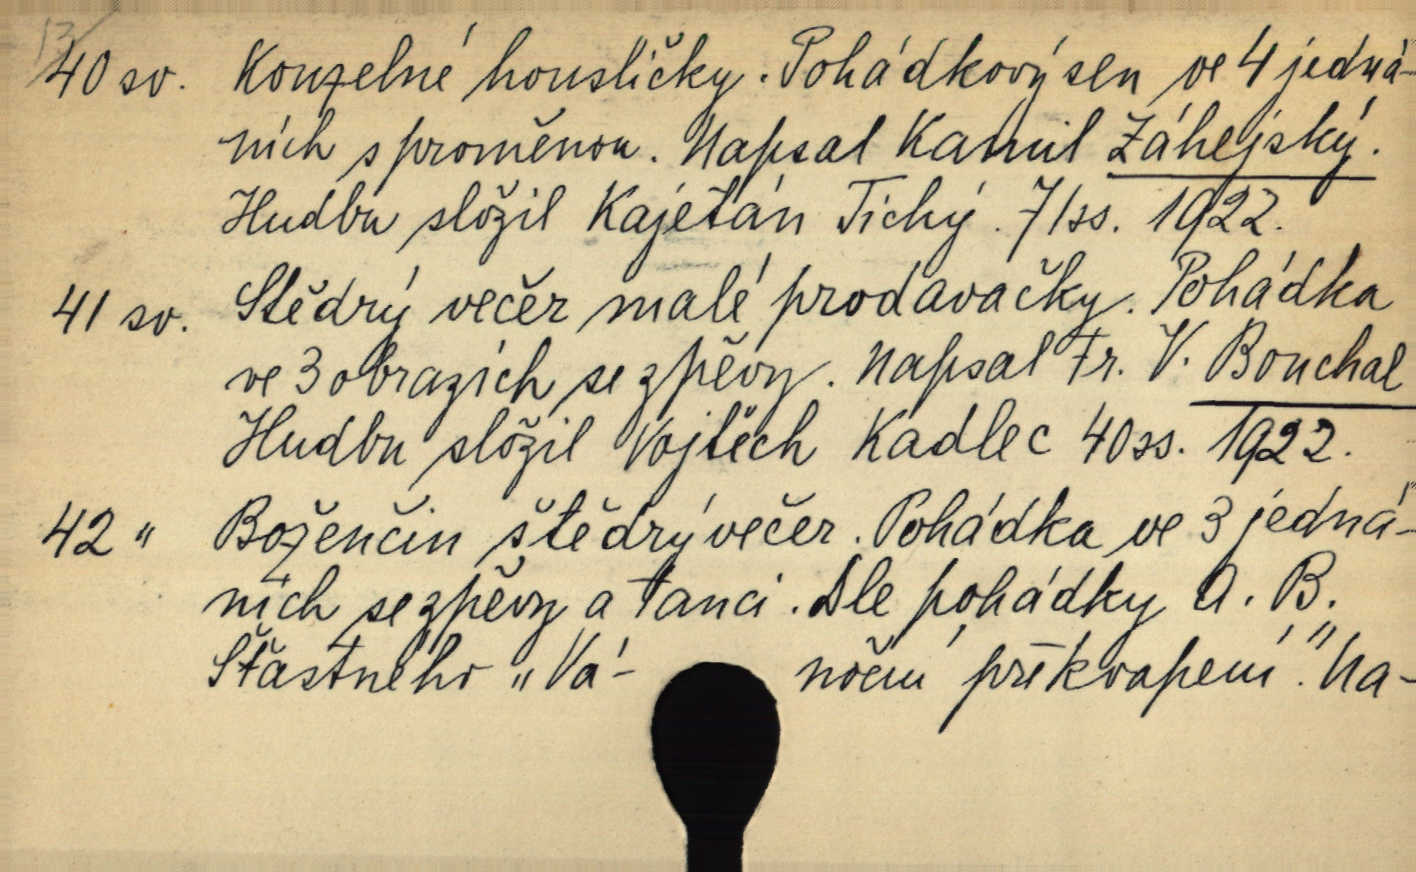 13
40 sv. Kouzelné housličky. Pohádkový sen ve 4 jedná-
ních s proměnou. Napsal Kamil Záhejský.
Hudbu složil Kajetán Tichý. 71ss. 1922.
41 sv. Stědrý večěr malé prodavačky. Pohádka
ve 3 obrazích se zpěvy. Napsal Fr. V. Bouchal
Hudbu složil Vojtěch Kadlec 40ss. 1922.
42 " Boženčin štědrý večer. Pohádka ve 3 jedná-
ních se zpěvy a tanci. Dle pohádky A. B.
Šťastného „Vá- noční překvapení." Na-